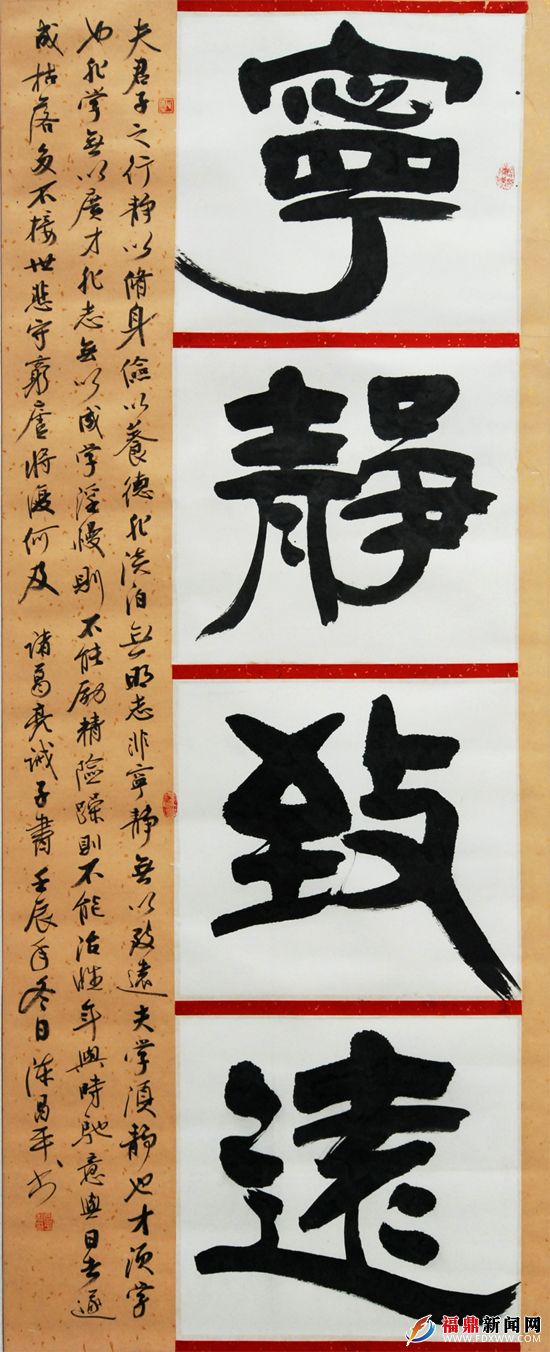 寧
靜
致
遠
夫君子之行靜以脩身儉以養德非淡泊無明志非寧靜無以致遠夫學須靜也才須學
也非學無以廣才非志無以成學淫慢則不能励精險躁則不能治性年與時馳意與日去遂
成枯落多不接世悲守窮廬將復何及 諸葛亮誡子書 壬辰年冬日 陳昌平书
福鼎新闻网
WWW.FDXWW.COM